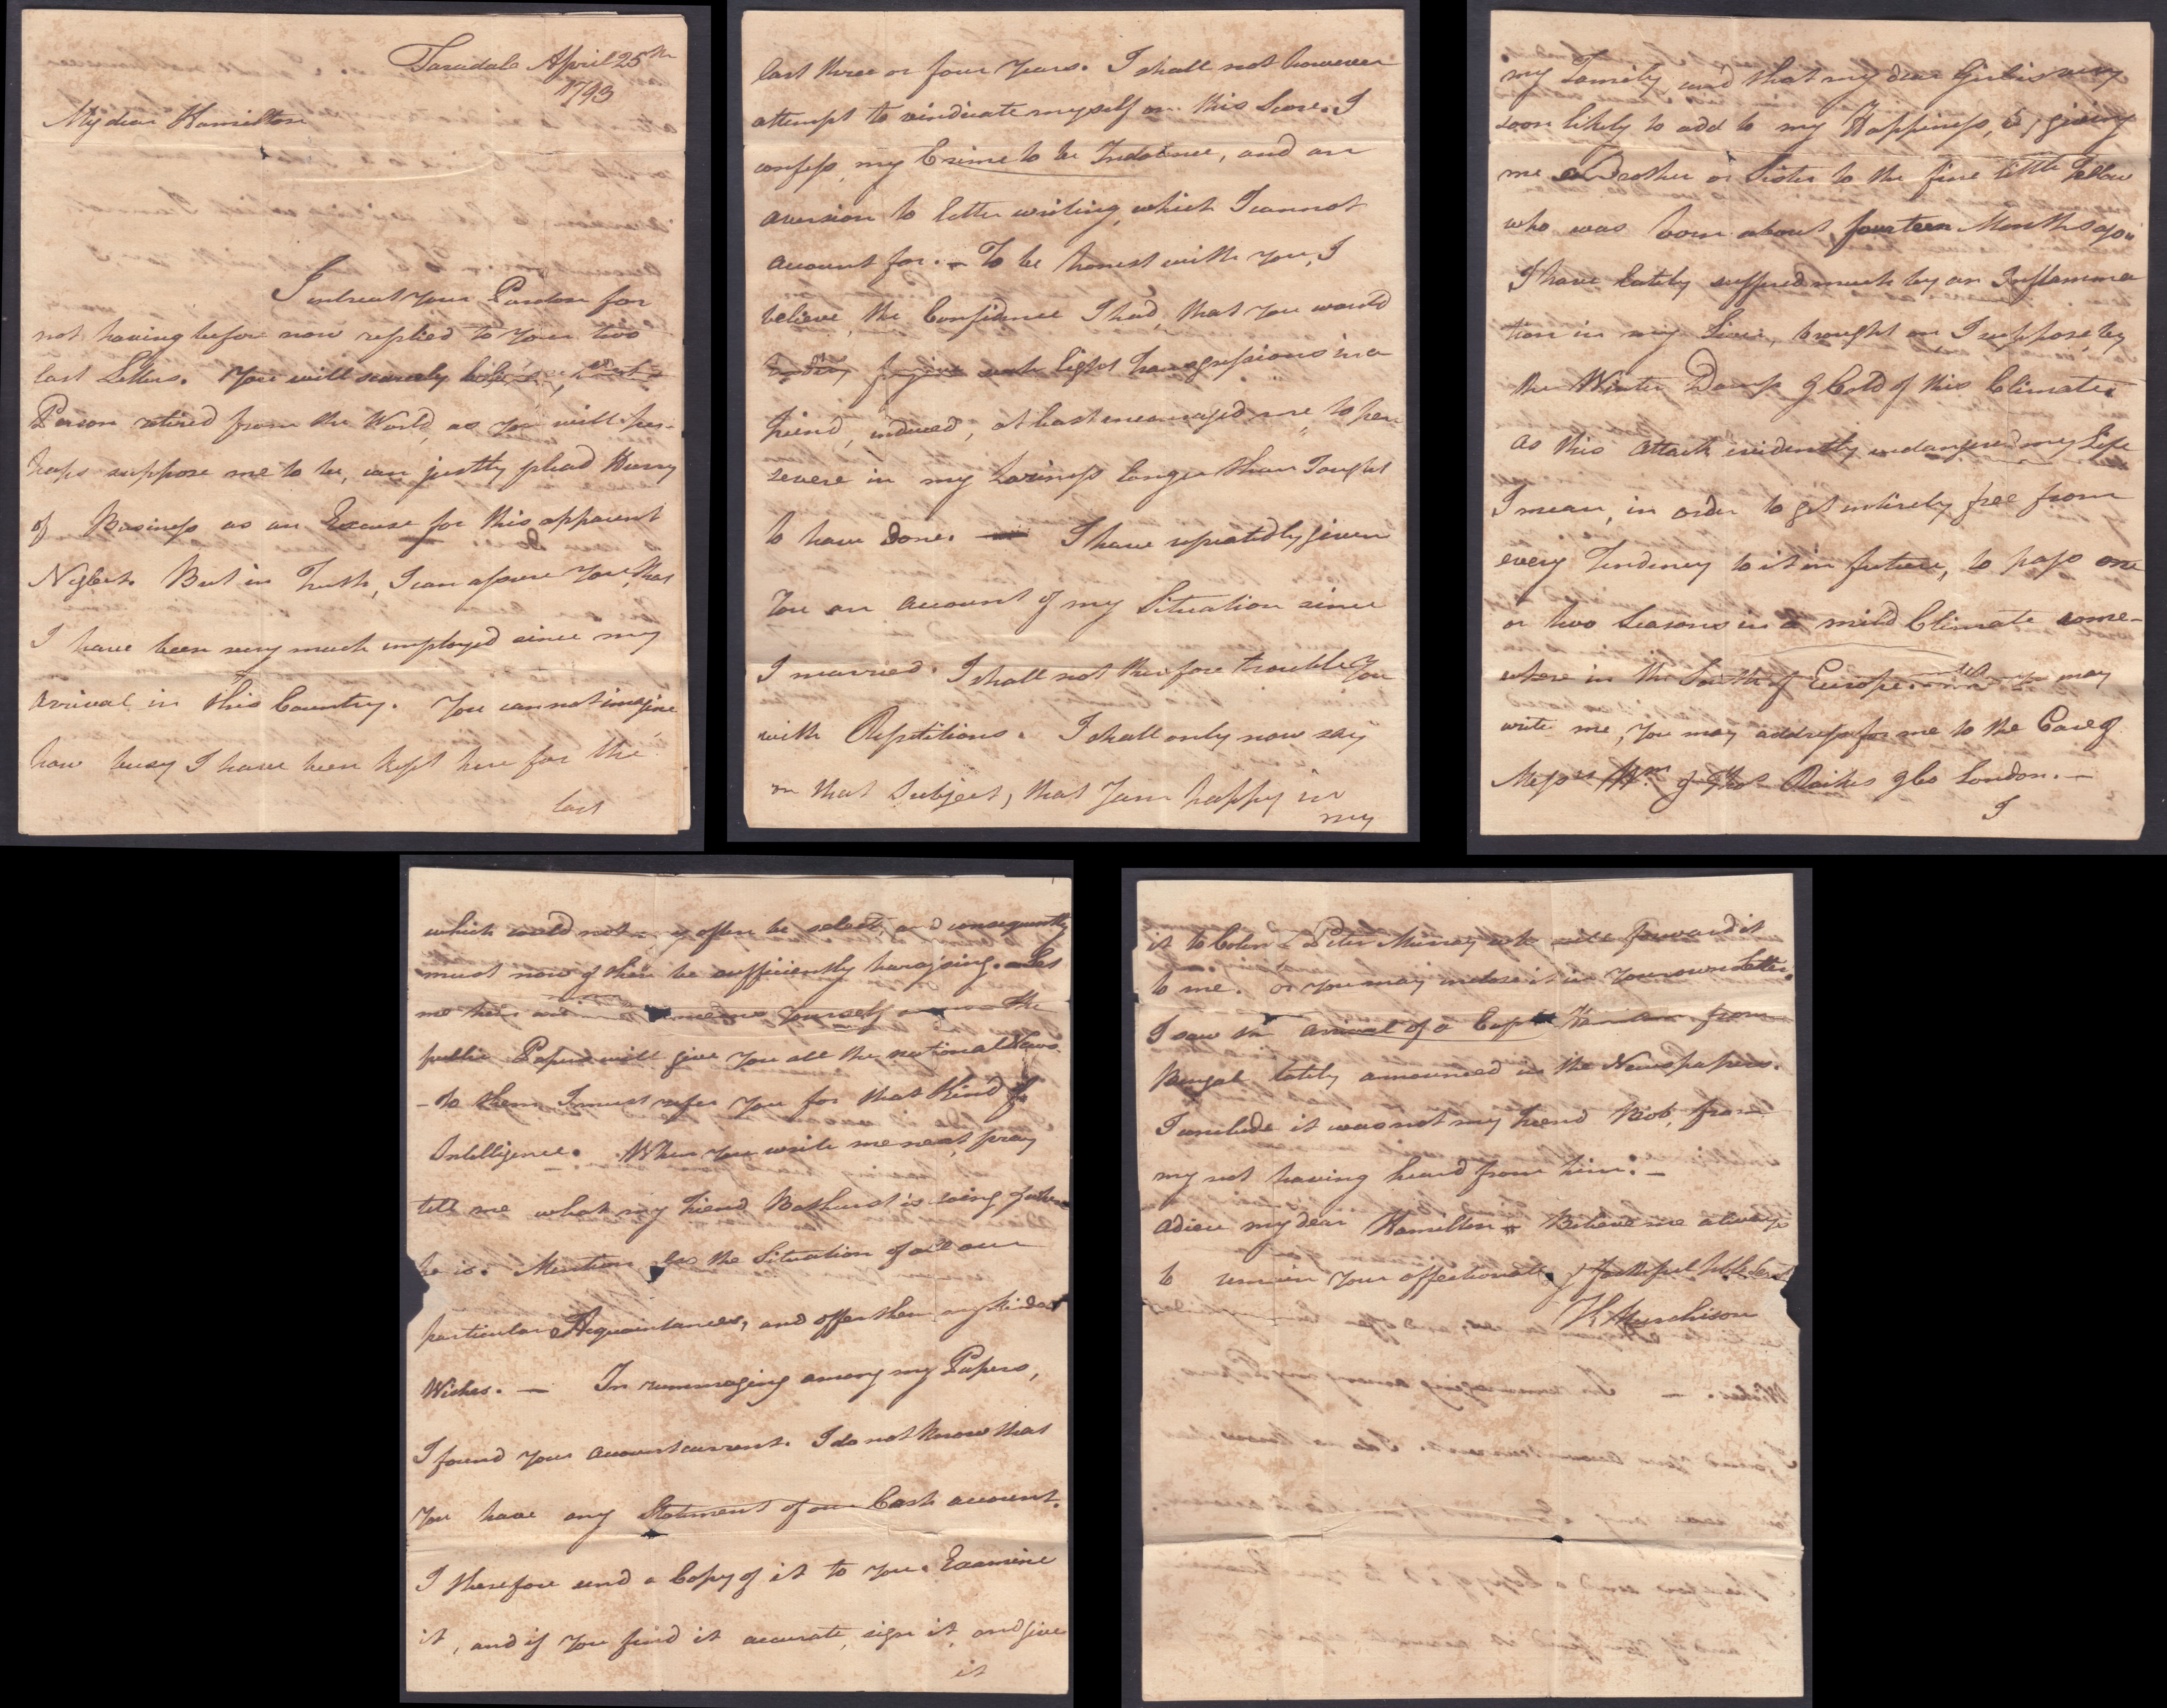 Taradale April 25th
1793
My dear Hamilton
I intreat Your Pardon for
not having before now replied to Your two
last Letters. You will scarcely believe that a
Person retired from the World, as You will per-
haps suppose me to be, can justly plead Hurry
of Business as an Excuse for this apparent
Neglect. But in Truth, I can assure You, that
I have been very much employed since my
arrival in this Country. You can not imagine
how busy I have been kept here for the
last
last three or four Years. I shall not however
attempt to vindicate myself on this Score. I
confess, my Crime to be Indolence, and an
aversion to letter writing, which I cannot
account for. – To be honest with You, I
believe, the Confidence I had, that You would
forgive such light transgressions in a
friend, induced, at least encouraged me, to per
severe in my Laziness longer than I ought
to have done. I have repeatedly given
You an account of my Situation since
I married. I shall not therefore trouble You
with Repetitions. I shall only now say
on that Subject, that I am happy in
my
my Family and that my dear Girl is very
soon likely to add to my Happiness, by giving
me a Brother or Sister to the fine little Fellow
who was born about fourteen Months ago.
I have lately suffered much by an Inflamma
tion in my Liver, brought on I suppose by
the Winter Damp & Cold of this Climate.
As this attack evidently endangered my Life
I mean, in order to get entirely free from
every Tendency to it in future, to pass one
or two Seasons in a mild Climate some-
where in the South of Europe. may
write me, You may address for me to the Care of
Messrs Wm & Thos Raikes & Co London. –
I
which could not often be select, and consequently
must now & then be sufficiently harassing. Let
me then Yourself the
public Papers will give You all the national News.
– to them I must refer You for that Kind of
Intelligence. When You write me next, pray
tell me what my friend Bathurst is doing & where
he is. Mention the Situation of all our
particular Acquaintances, and offer them my kindest
Wishes. – In rummaging among my Papers,
I found Your account current. I do not know that
You have any Statement of our Cash account.
I therefore send a Copy of it to You. Examine
it, and if You find it accurate, sign it, and give
it
it to Colonl Peter Murray who will forward it
to me. or You may inclose it in Your own Letter.
I saw the arrival of a Captn Hamilton from
Bengal lately announced in the Newspapers.
I conclude it was not my friend Bob, from
my not having heard from him. –
Adieu my dear Hamilton – Believe me always
to remain Your affectionate & faithful hble Servt
K Murchison